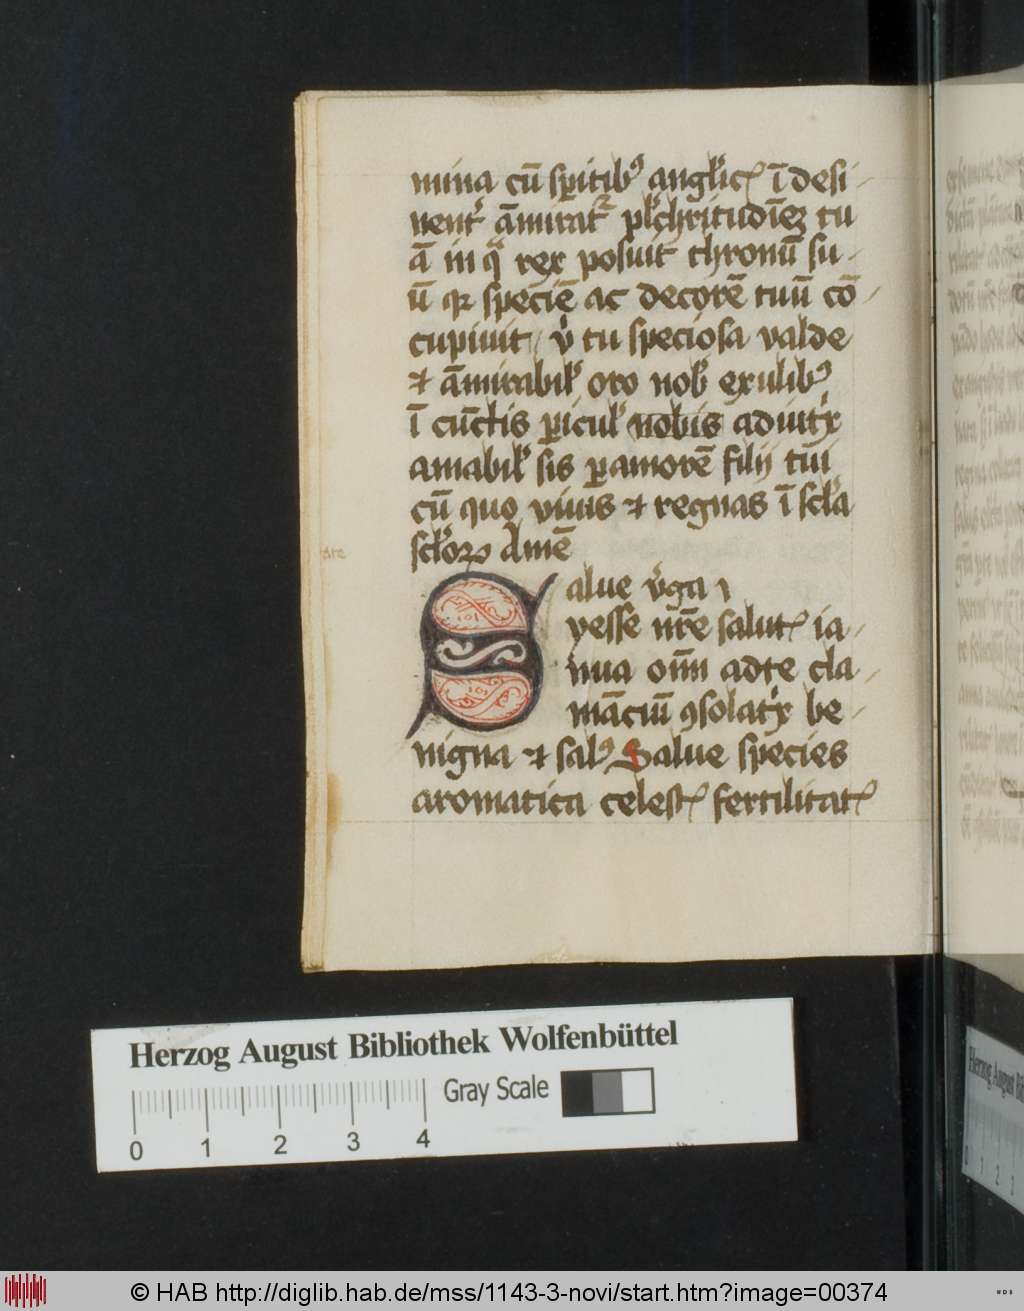 mina cū sp̄itibꝫ anglic̄ ī desi
nent᷑ ām̄irat᷑ pl̄chritudīeꝫ tu
ā in q̄ rex posuit thronū su
ū qr speciē ac decorē tuū cō
cupiuit v̓ tu speciosa valde
et āmirabil̓ oro nob̓ exulibꝫ
ī cūctis ꝑicul̓ nobis adiut̓x
amabil̓ sis ꝑ amorē filij tui
cū quo viuis et regnas ī sc̄la
sc̄loꝝ Amē
Salue v̓ga
yesse nr̄e salut᷑ ia
nua om̄i ad te cla
māciū ꝯsolat̓x be
nigna et salꝰ Salue species
aromatica celest᷑ fertilitat᷑
Herzog August Bibliothek Wolfenbüttel
Gray Scale
0 1 2 3 4
© HAB http://diglib.hab.de/mss/1143-3-novi/start.htm?image=00374